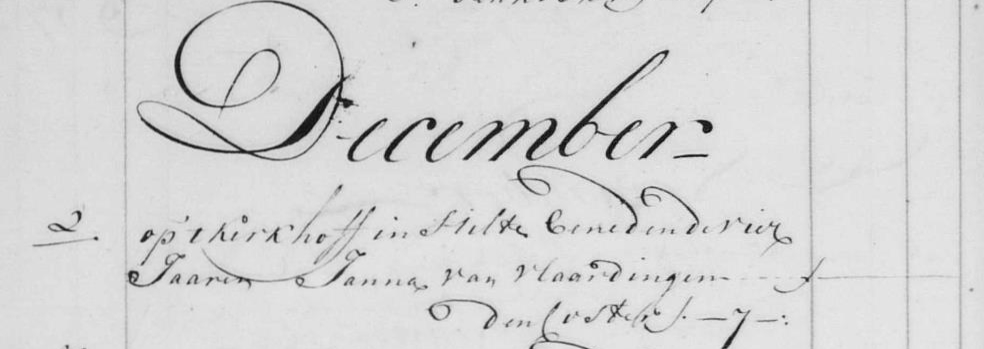 December
2. op 't kerkhoff in stilte benedende vier
Jaaren Janna van Vlaardingen
den Coster f. — 7 — :